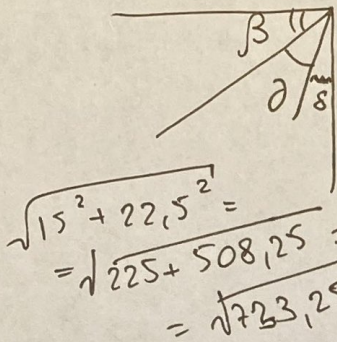 β
∂ δ
√15² + 22,5² =
= √225 + 508,25 =
= √723,2